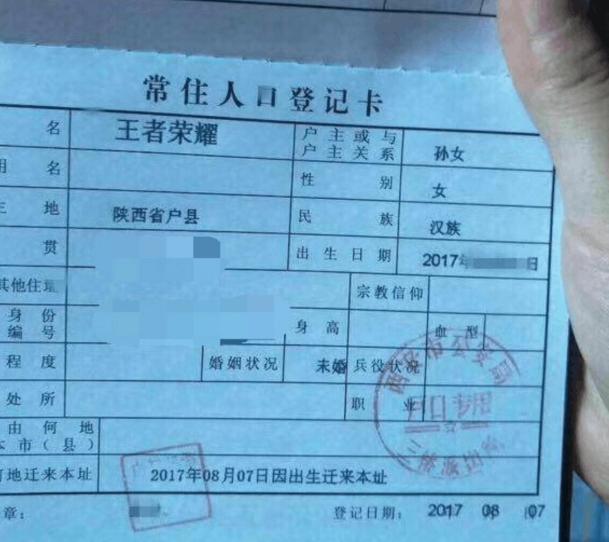 常住人口登记卡
名 王者荣耀 户主或与户主关系 孙女
用名 性别 女
生地 陕西省户县 民族 汉族
贯 出生日期 2017年 日
其他住 宗教信仰
身份编号 身高 血型
程度 婚姻状况 未婚 兵役状况
处所 职业
由何地
本市(县)
何地迁来本址 2017年08月07日因出生迁来本址
章: 登记日期: 2017 08 07
西安市公安局
户口专用
三桥派出所